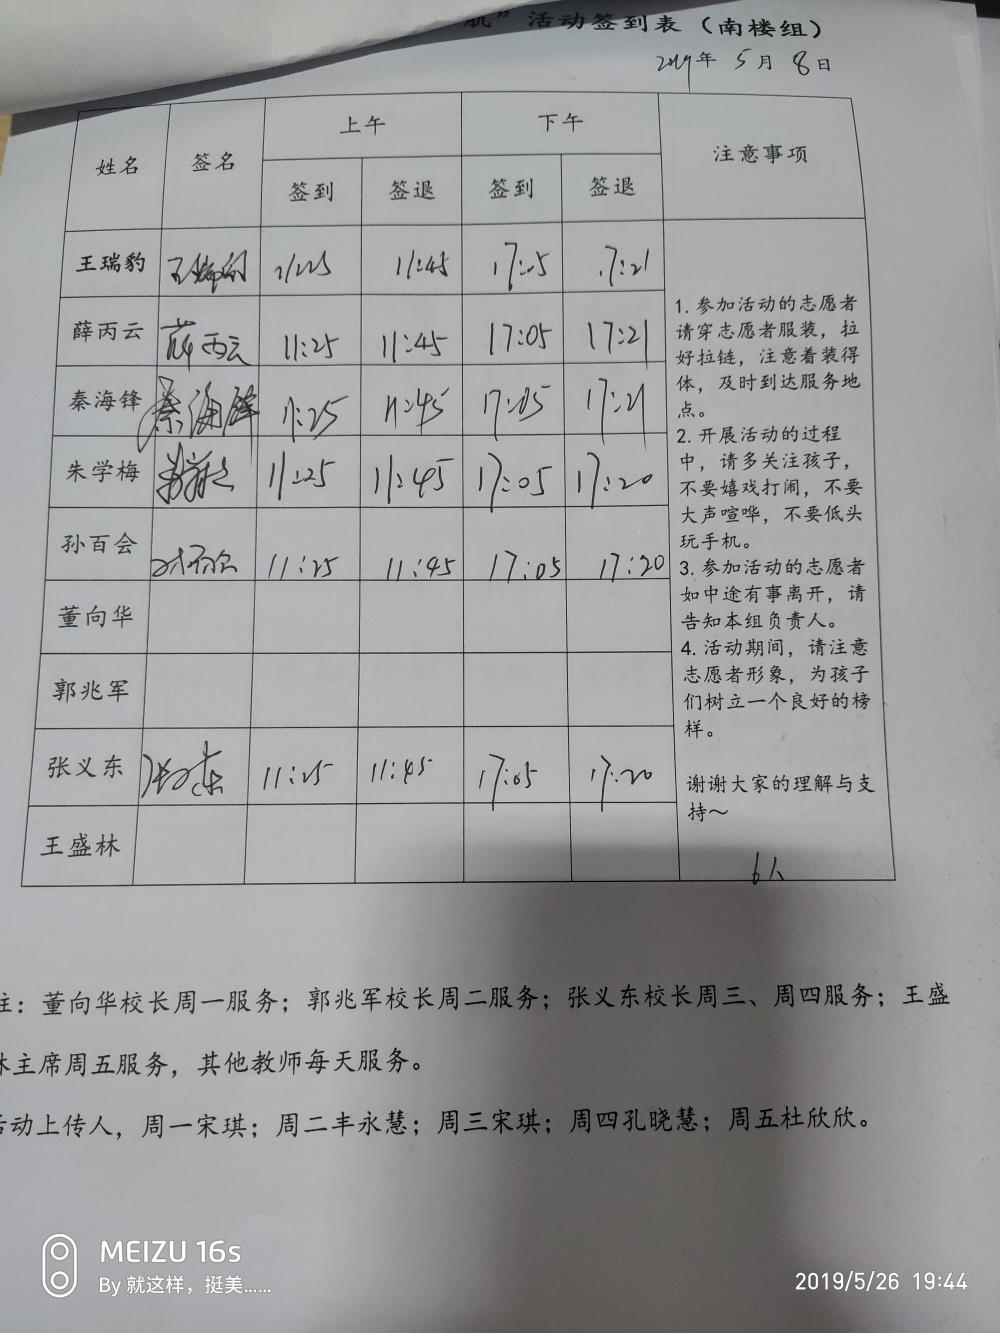 航”活动签到表（南楼组）
2019年 5月 8日
姓名 签名 上午 下午 注意事项
签到 签退 签到 签退
王瑞豹 王瑞豹 11:25 11:45 17:05 17:21
薛丙云 薛丙云 11:25 11:45 17:05 17:21
秦海锋 秦海锋 11:25 11:45 17:05 17:21
朱学梅 11:25 11:45 17:05 17:20
孙百会 孙百会 11:25 11:45 17:05 17:20
董向华
郭兆军
张义东 张义东 11:25 11:45 17:05 17:20
王盛林
1. 参加活动的志愿者
请穿志愿者服装，拉
好拉链，注意着装得
体，及时到达服务地
点。
2. 开展活动的过程
中，请多关注孩子，
不要嬉戏打闹，不要
大声喧哗，不要低头
玩手机。
3. 参加活动的志愿者
如中途有事离开，请
告知本组负责人。
4. 活动期间，请注意
志愿者形象，为孩子
们树立一个良好的榜
样。
谢谢大家的理解与支
持～
6人
注：董向华校长周一服务；郭兆军校长周二服务；张义东校长周三、周四服务；王盛
林主席周五服务，其他教师每天服务。
活动上传人，周一宋琪；周二丰永慧；周三宋琪；周四孔晓慧；周五杜欣欣。
MEIZU 16s
By 就这样，挺美……
2019/5/26 19:44